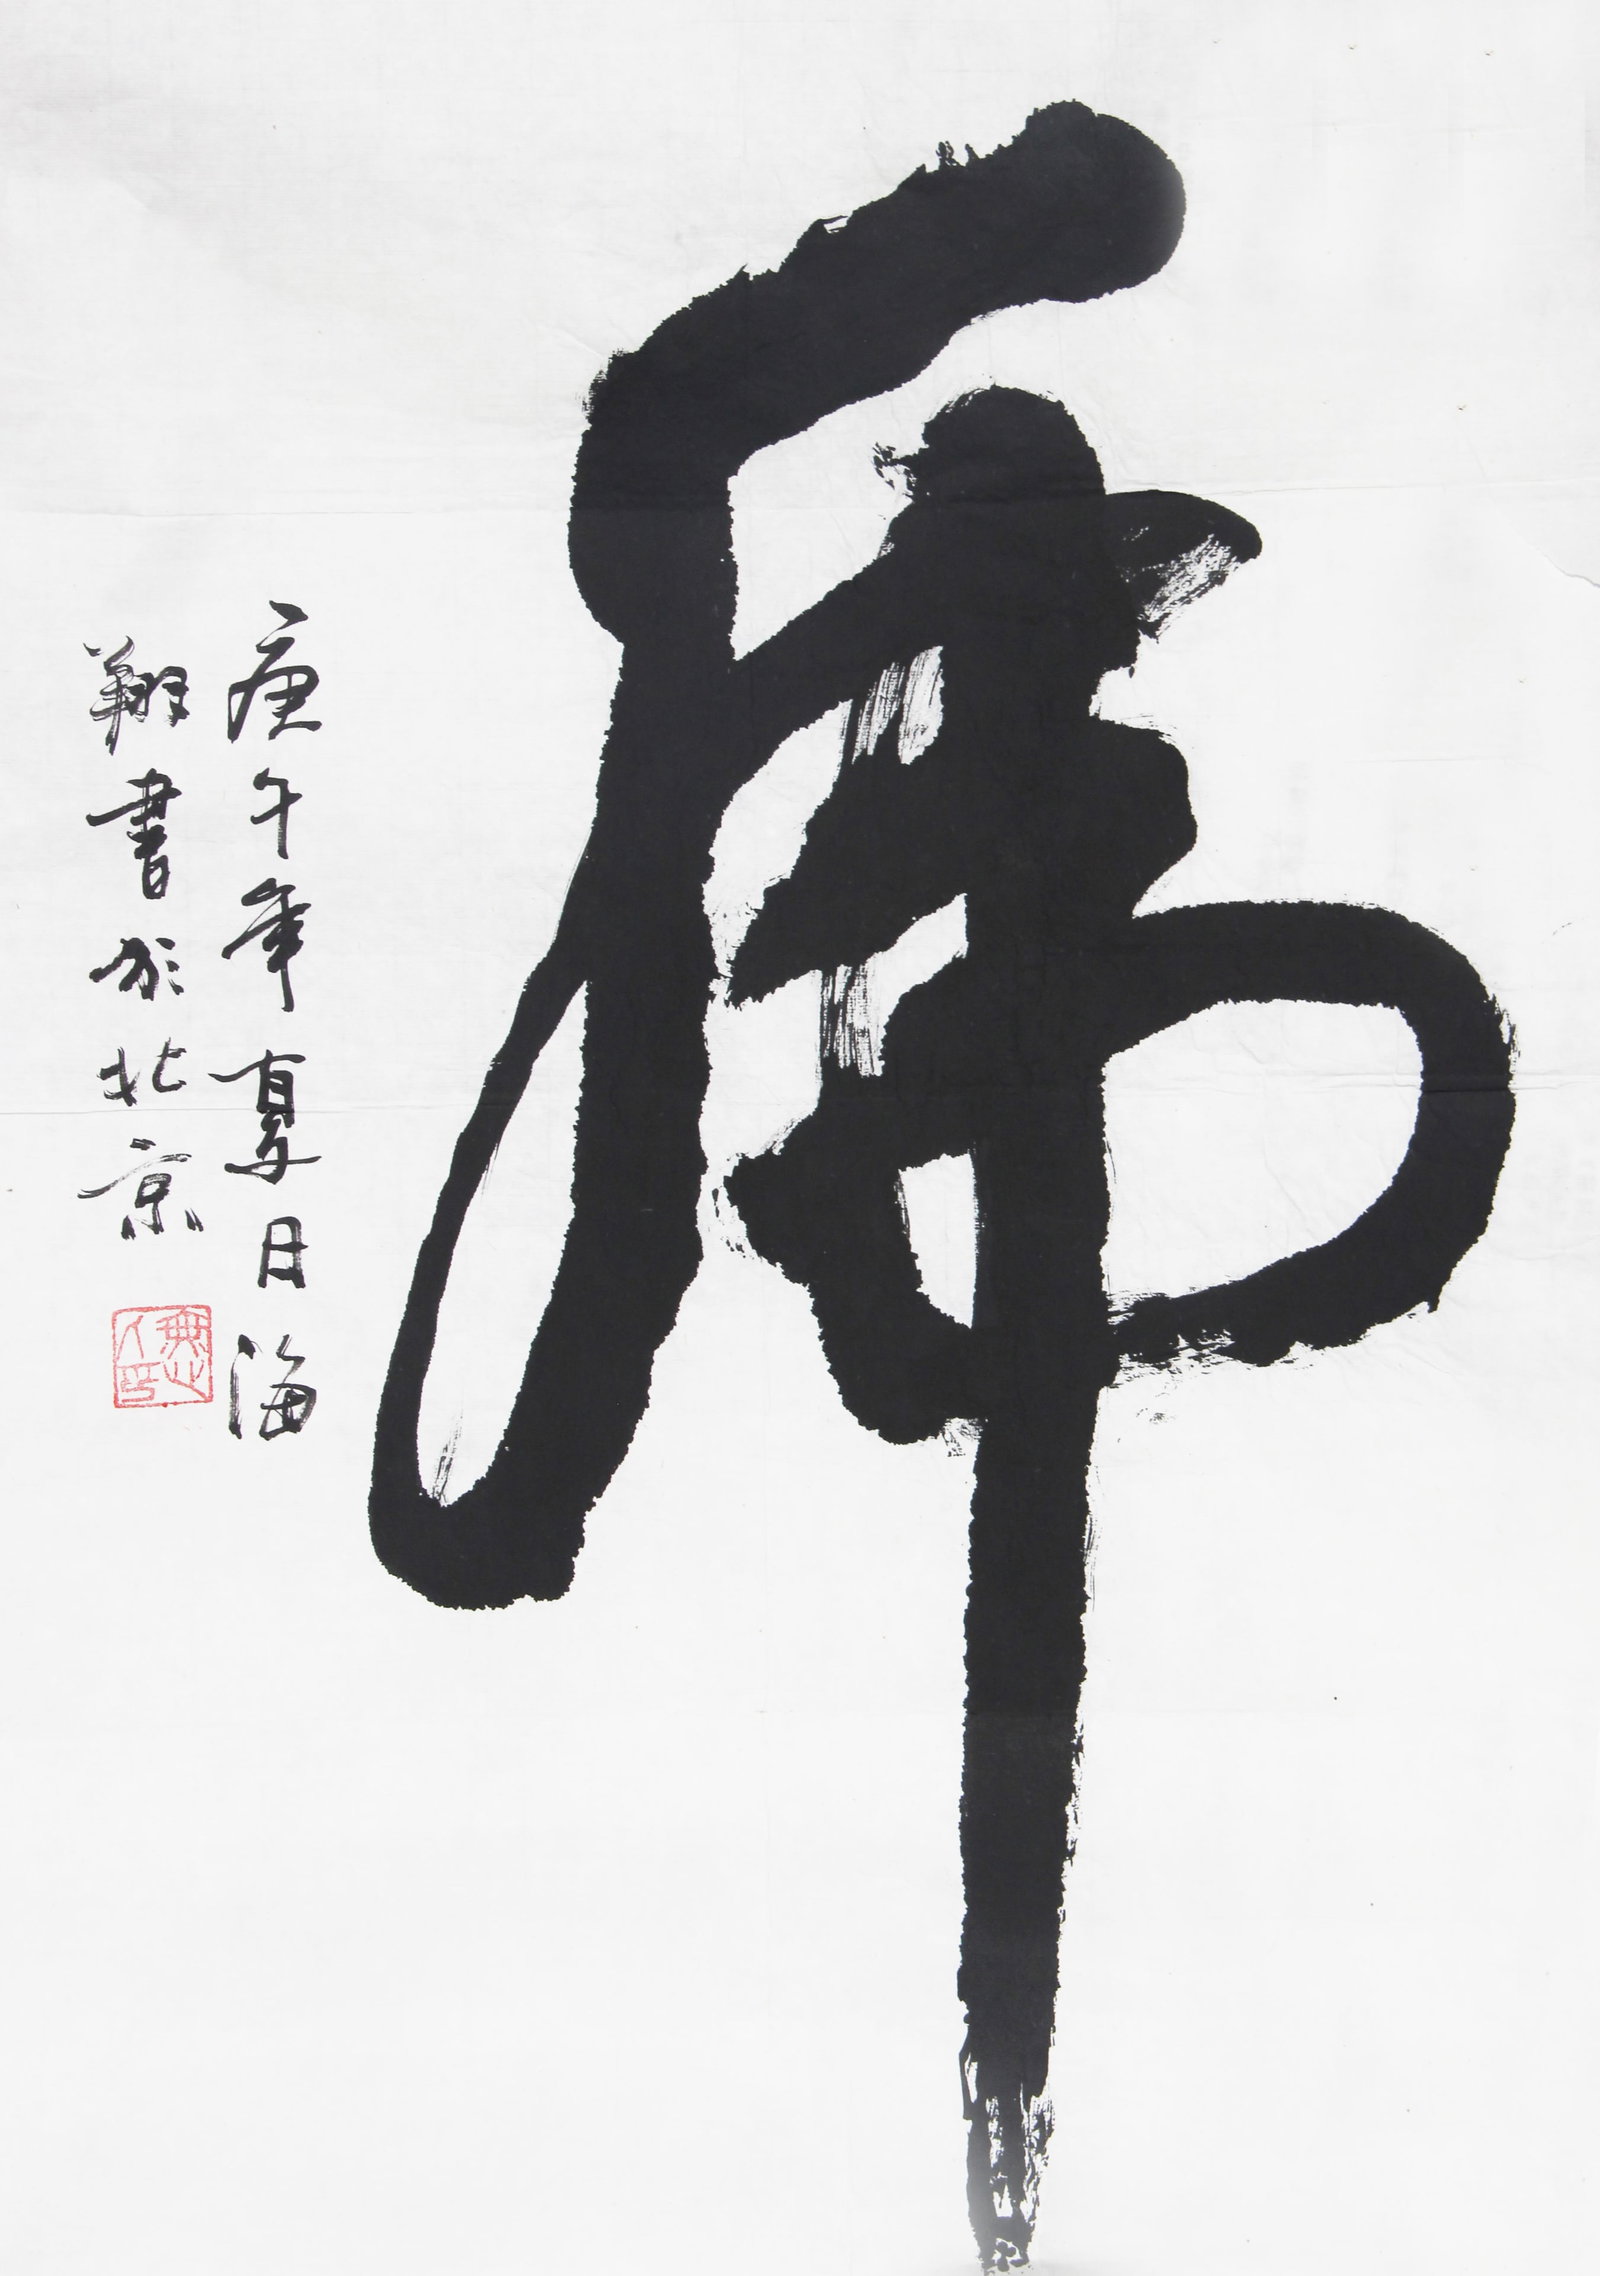 虎
庚午年夏日海
翔書於北京